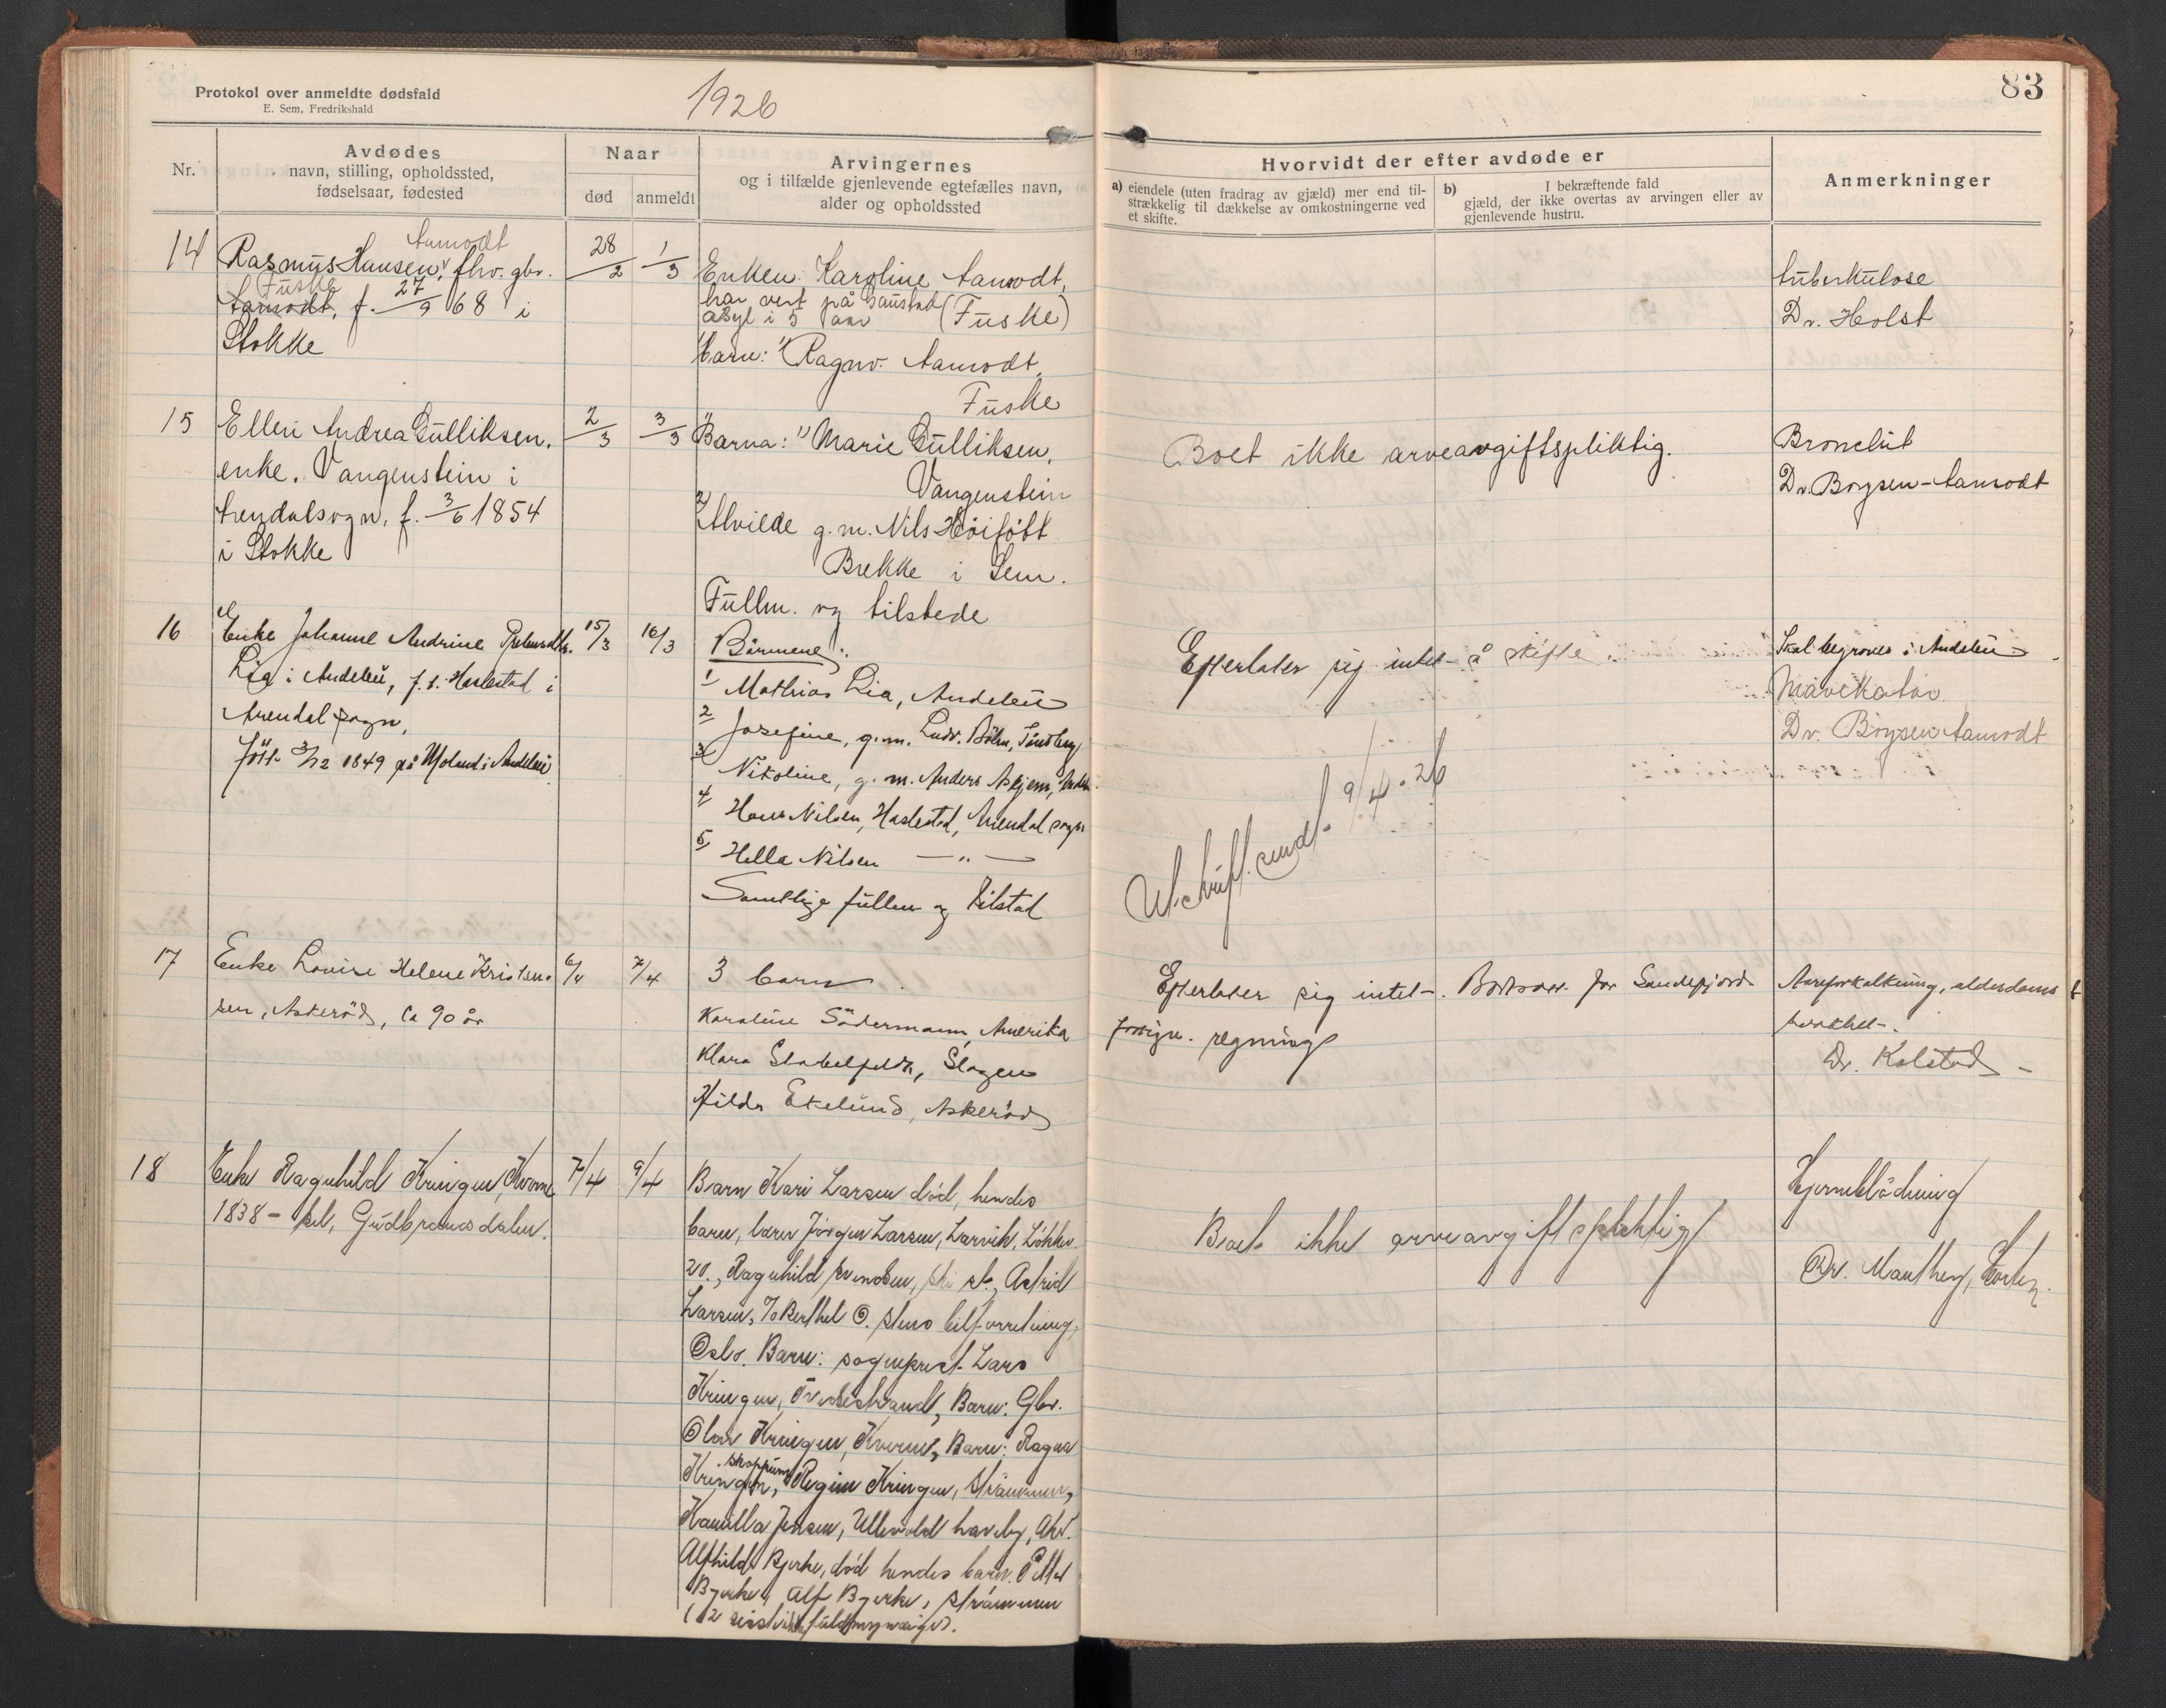 Protokol over anmeldte dødsfald
E. Sem, Fredrikshald
1926
83
Nr.
Avdødes
navn, stilling, opholdssted,
fødselsaar, fødested
Naar
død
anmeldt
Arvingernes
og i tilfælde gjenlevende egtefælles navn,
alder og opholdssted
Hvorvidt der efter avdøde er
a) eiendele (uten fradrag av gjæld) mer end til-
strækkelig til dækkelse av omkostningerne ved
et skifte.
b) I bekræftende fald
gjæld, der ikke overtas av arvingen eller av
gjenlevende hustru.
Anmerkninger
14
Aamodt
Rasmus Hansen, fhv. gbr.
Fuske
Aamodt, f. 27/9 68 i
Stokke
28/2
1/3
Enken: Karoline Aamodt,
har vert på Gaustad
asyl i 5 aar (Fuske)
barn: 1) Ragnv. Aamodt,
Fuske
tuberkulose
Dr. Holst
15
Ellen Andrea Gulliksen,
enke. Vangenstein i
Arendalsogn, f. 3/6 1854
i Stokke
2/3
3/3
Barna: 1) Marie Gulliksen,
Vangenstein
2) Alvilde g.m. Nils Høifött
Brekke i Sem.
Fullm. og tilstede
Boet ikke arveavgiftspliktig.
Bronchit
Dr. Boysen-Aamodt
16
Enke Johanne Andrine
Lia i Andebu, f. i. Haslestad i
Arendal sogn,
født 3/12 1849 på Moland i Andebu
15/3
16/3
Börnene:
1 Mathias Lia, Andebu
2 Josefine, g.m. Ludv. Böhn, Tönsberg
3 Nikoline, g.m. Anders Askjem, Andebu
4 Hans Nilsen, Haslestad, Arendal sogn
5 Hella Nilsen — " —
Samtlige fullm og tilsted
Efterlater sig intet å skifte
Utskrift sendt 9/4-26
Skal begraves i Andebu
Mavekatar
Dr. Boysen Aamodt
17
Enke Lovise Helene Kristen-
sen, Askeröd, ca 90 år
6/4
7/4
3 barn
Karoline Södermann, Amerika
Klara Stabelfeldt, Slagen
Hilda Ekelund, Askeröd
Efterlater sig intet. Bortsatt for Sandefjords
forsign. regning
Aareforkalkning, alderdoms
svakhet.
Dr. Kolstad
18
Enke Ragnhild Kringen, Kverne
1838 – Sel, Gudbrandsdalen.
7/4
9/4
Barn Kari Larsen död, hendes
barn, barn Jörgen Larsen, Larvik, Lökke
20., Ragnhild Svendsen, Ski st., Astrid
Larsen, % Berthel O. Stens bilforretning,
Oslo. Barn: sogneprest Lars
Kringen, Tvedestrand, Barn: Gbr.
Olav Kringen, Kverne, Barn: Ragna
Skoppum
Kringen, Regine Kringen, Strömmen,
Kamilla Jensen, Ullevold haveby, Akr.
Alfhild Bjerke, död hendes barn. Petter
Bjerke, Alf Bjerke, Strömmen
(12 sidst ikke fuldmyndige).
Boet ikke arveavgiftspliktig
Hjerneblödning
Dr. Manthey, Horten.